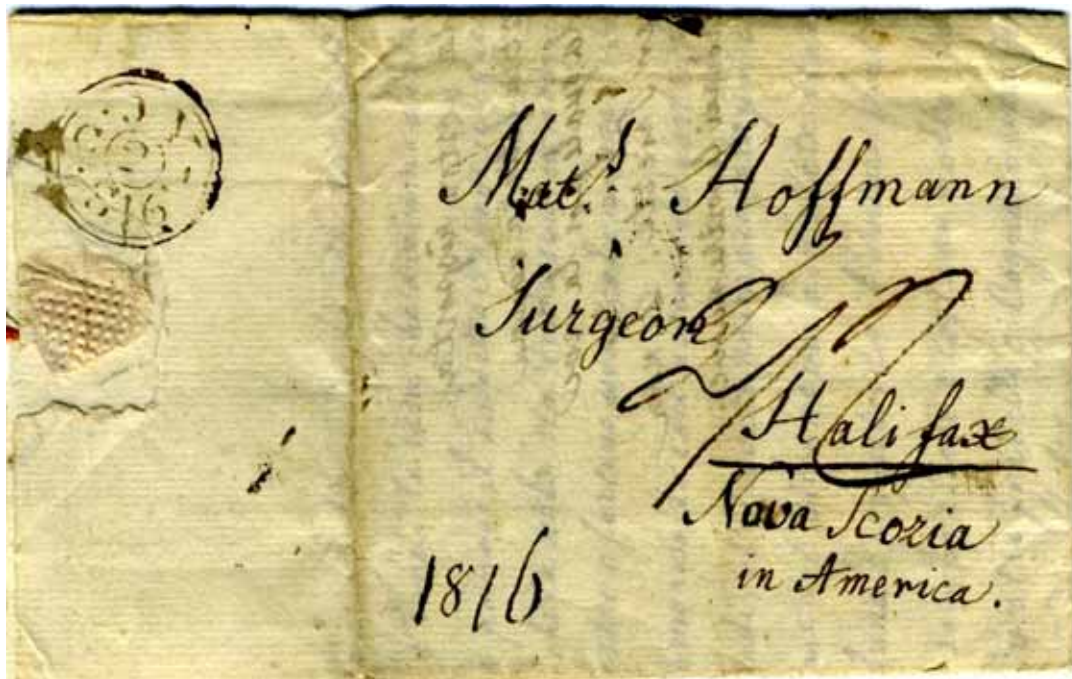 Mat.s Hoffmann
Surgeon
Halifax
Nova Scozia
in America.
1816